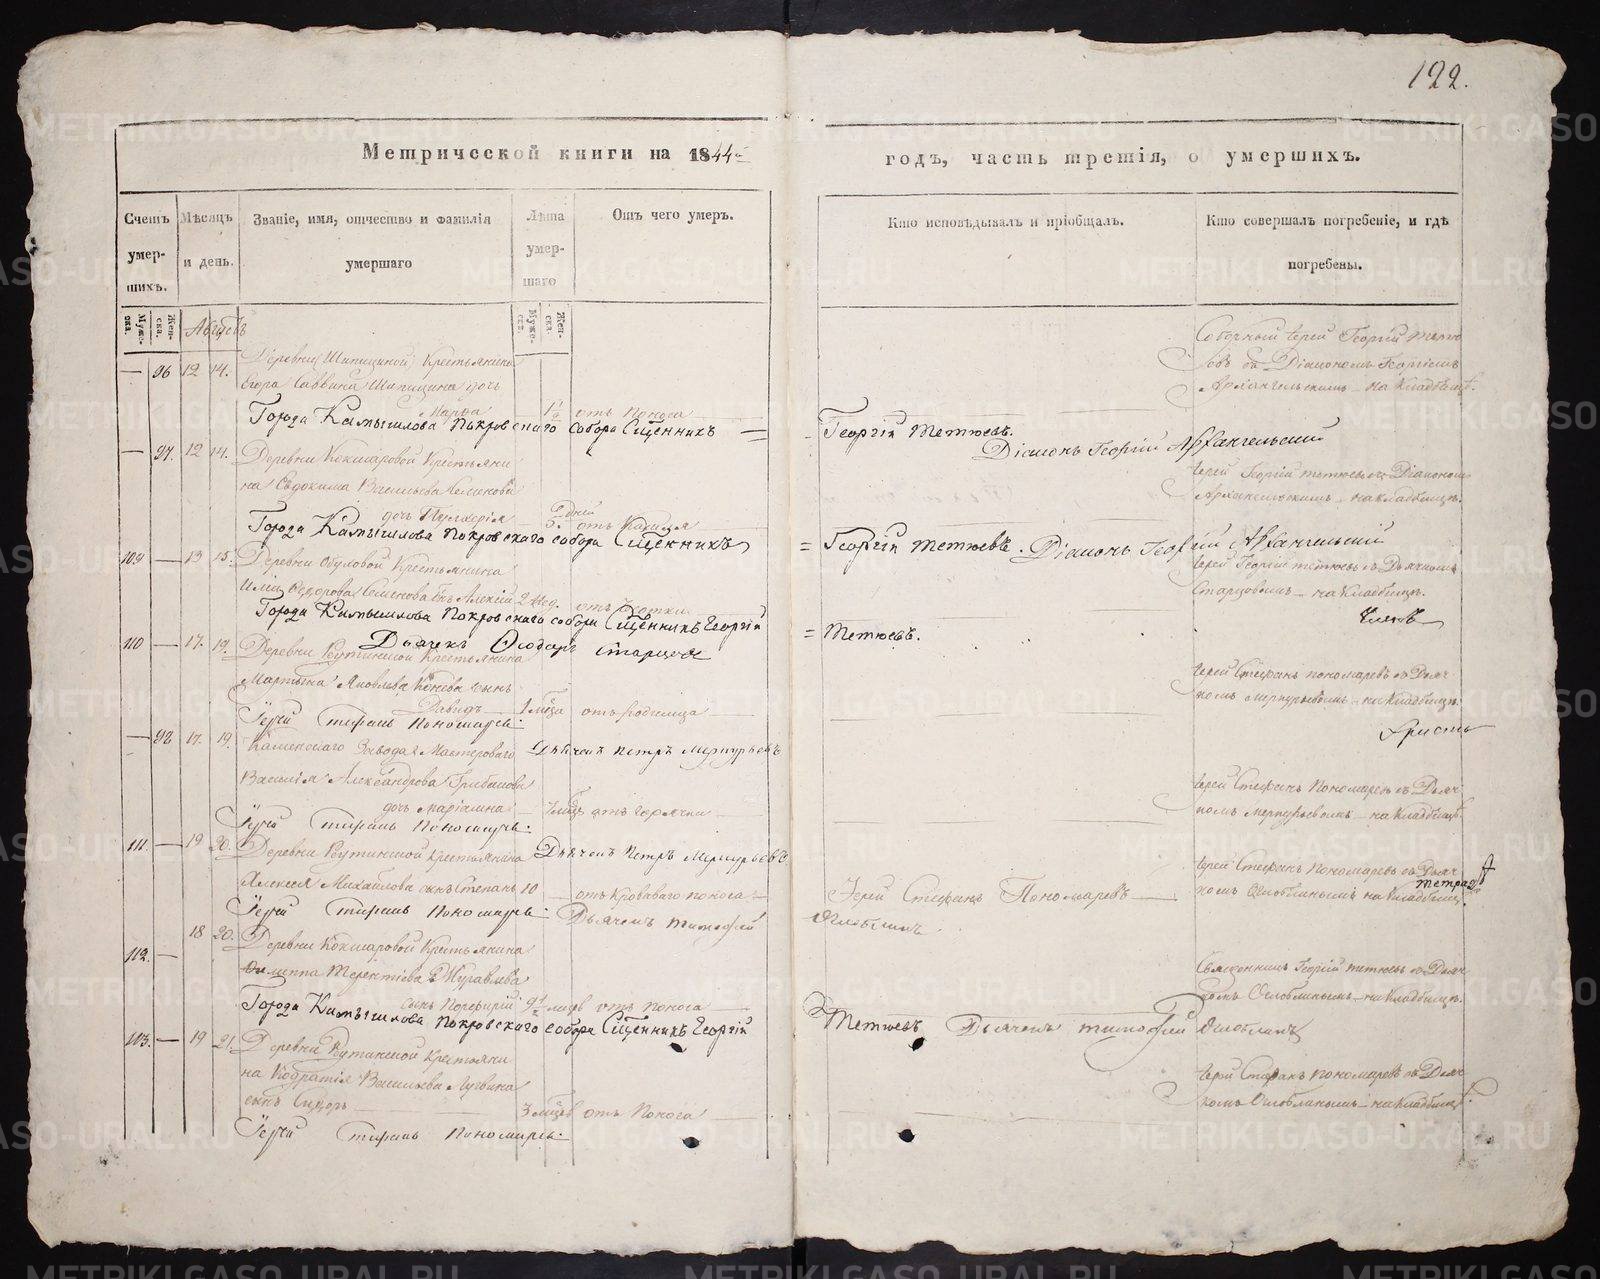 122.
Метрической книги на 1844й
годъ, часть третія, о умершихъ.
Счетъ умер-шихъ.
Мѣсяцъ и день.
Званіе, имя, отчество и фамилія умершаго
Лѣта умер-шаго
Отъ чего умеръ.
Кто исповѣдывалъ и пріобщалъ.
Кто совершалъ погребеніе, и гдѣ погребены.
Муже-ска.
Жен-ска.
Муже-ска.
Жен-ска.
Августъ
— 96 12 14.
Деревни Шипициной Крестьянина
Егора Саввина Шипицина дочь
Марѳа
отъ поноса
Соборный Іерей Георгій Тетю
евъ съ Діакономъ Георгіемъ
Архангельскимъ на кладбищѣ.
Города Камышлова Покровскаго собора Сщенникъ =
Георгій Тетюевъ.
Діаконъ Георгій Архангельскій
— 97. 12 14.
Деревни Кокшаровой Крестьяни
на Евдокима Васильева
дочь Пулхерія
дней
отъ
Іерей Георгій Тетюевъ съ Діакономъ
Архангельскимъ на кладбищѣ.
Города Камышлова Покровскаго собора Сщенникъ
= Георгій Тетюевъ. Діаконъ Георгій Архангельскій
109 — 13 15.
Деревни Обуховой Крестьянина
Ильи Ѳедорова Семенова сынъ Алексій
2 нед.
отъ
Іерей Георгій Тетюевъ съ Дьячкомъ
Старцовымъ на кладбищѣ.
Города Камышлова Покровскаго собора Сщенникъ Георгій
= Тетюевъ.
Дьячекъ Старцовъ
110 — 17. 19.
Деревни Реутинской Крестьянина
Мартына Яковлева сынъ
Давидъ
1 мѣца
отъ родимца
Іерей Стефанъ Пономаревъ съ Дьяч
комъ Меркурьевымъ на кладбищѣ.
Іерей Стефанъ Пономаревъ.
Дьячекъ Петръ Меркурьевъ
— 98 17. 19.
Каменскаго Завода Мастероваго
Василія Александрова Грибанова
дочь Маріамна
отъ горячки
Іерей Стефанъ Пономаревъ съ Дьяч
комъ Меркурьевымъ на кладбищѣ.
Іерей Стефанъ Пономаревъ.
Дьячекъ Петръ Меркурьевъ
111. — 19 20.
Деревни Реутинской Крестьянина
Алексея Михайлова сынъ Степанъ
10
отъ кроваваго поноса
Іерей Стефанъ Пономаревъ
Іерей Стефанъ Пономаревъ съ Дьяч
комъ Оглоблинымъ на кладбищѣ.
Іерей Стефанъ Пономаревъ. Дьячекъ Тимофей
Оглоблинъ.
112. — 18 20.
Деревни Кокшаровой Крестьянина
Филиппа Терентіева Журавлева
сынъ Порфирій
отъ поноса
Священникъ Георгій Тетюевъ съ Дьяч
комъ Оглоблинымъ на кладбищѣ.
Города Камышлова Покровскаго собора Сщенникъ Георгій
Тетюевъ Дьячекъ Тимофей Оглоблинъ
103. — 19 21.
Деревни Реутинской Крестьяни
на Кодратія Васильева
сынъ Сидоръ
3 мѣцевъ
отъ поноса
Іерей Стефанъ Пономаревъ съ Дьяч
комъ Оглоблинымъ на кладбищѣ.
Іерей Стефанъ Пономаревъ.
METRIKI.GASO-URAL.RU